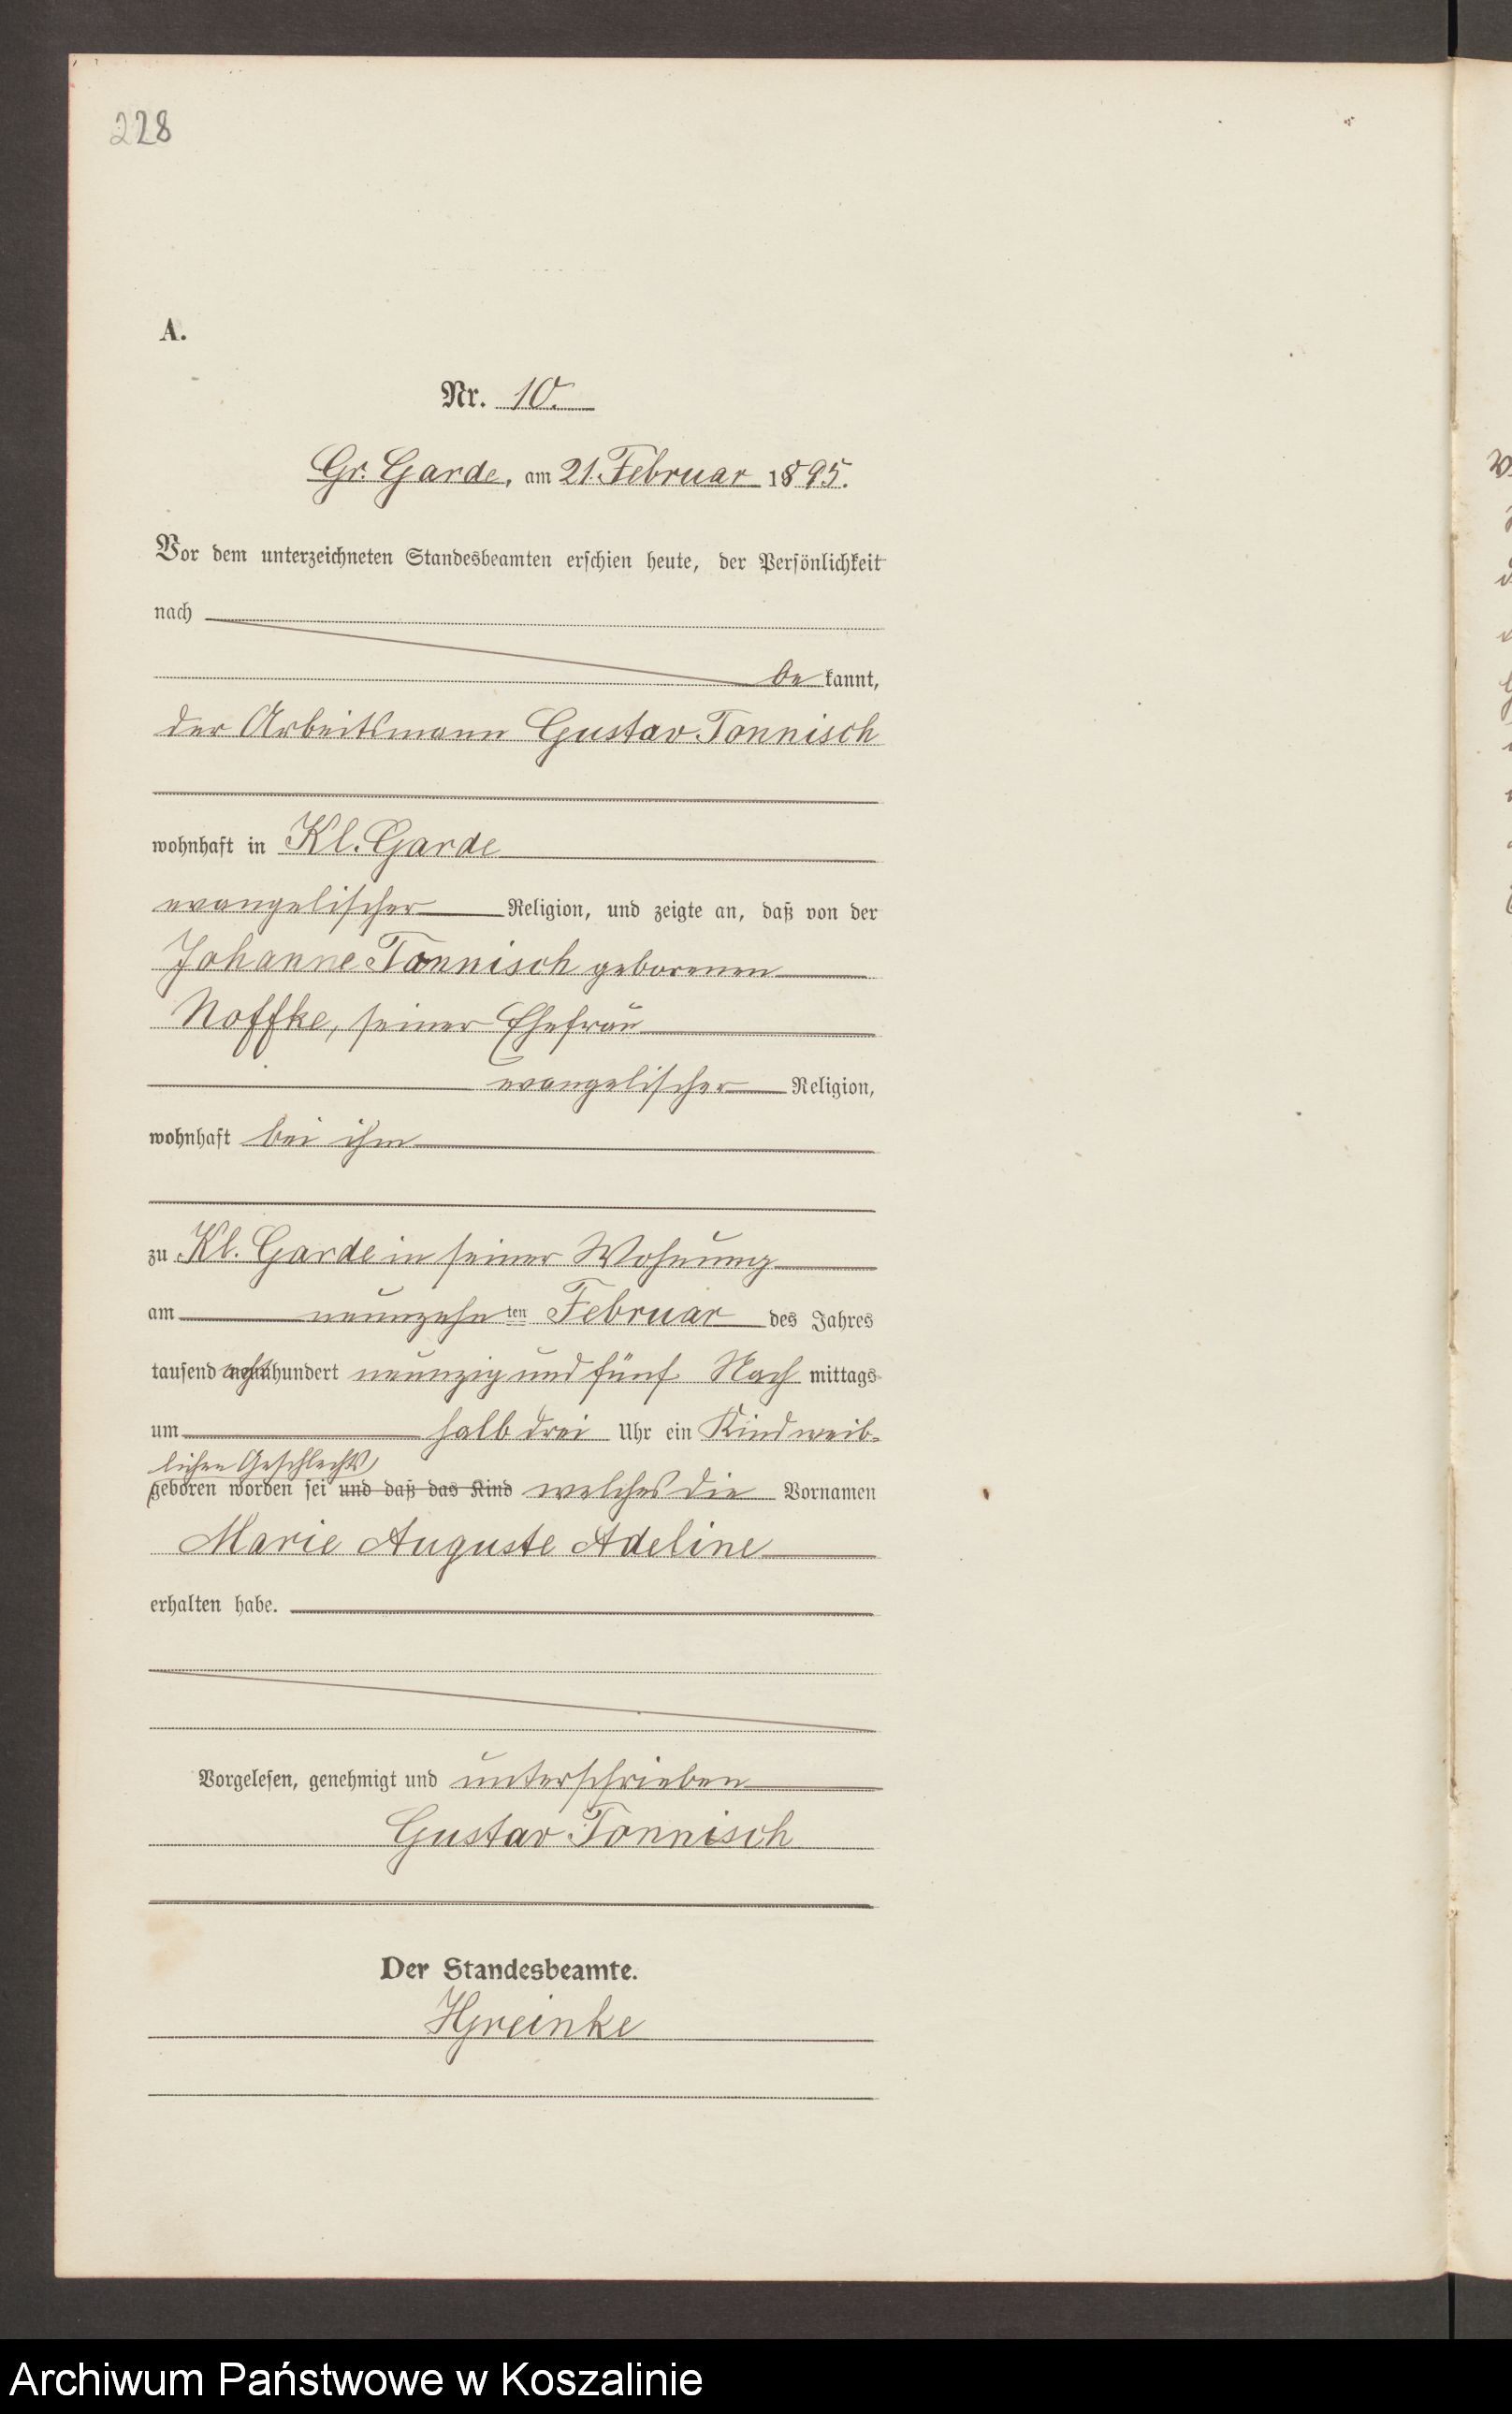 228
A.
Nr. 10.
Gr. Garde, am 21. Februar 1895.
Vor dem unterzeichneten Standesbeamten erschien heute, der Persönlichkeit
nach
bekannt,
der Arbeitsmann Gustav Tonnisch
wohnhaft in Kl. Garde
evangelischer Religion, und zeigte an, daß von der
Johanne Tonnisch geborenen
Noffke, seiner Ehefrau
evangelischer Religion,
wohnhaft bei ihm
zu Kl. Garde in seiner Wohnung
am neunzehnten Februar des Jahres
tausend achthundert neunzig und fünf Nachmittags
um halb drei Uhr ein Kind weib-
lichen Geschlechts
geboren worden sei und daß das Kind welches die Vornamen
Marie Auguste Adeline
erhalten habe.
Vorgelesen, genehmigt und unterschrieben
Gustav Tonnisch
Der Standesbeamte.
HGreinke
Archiwum Państwowe w Koszalinie